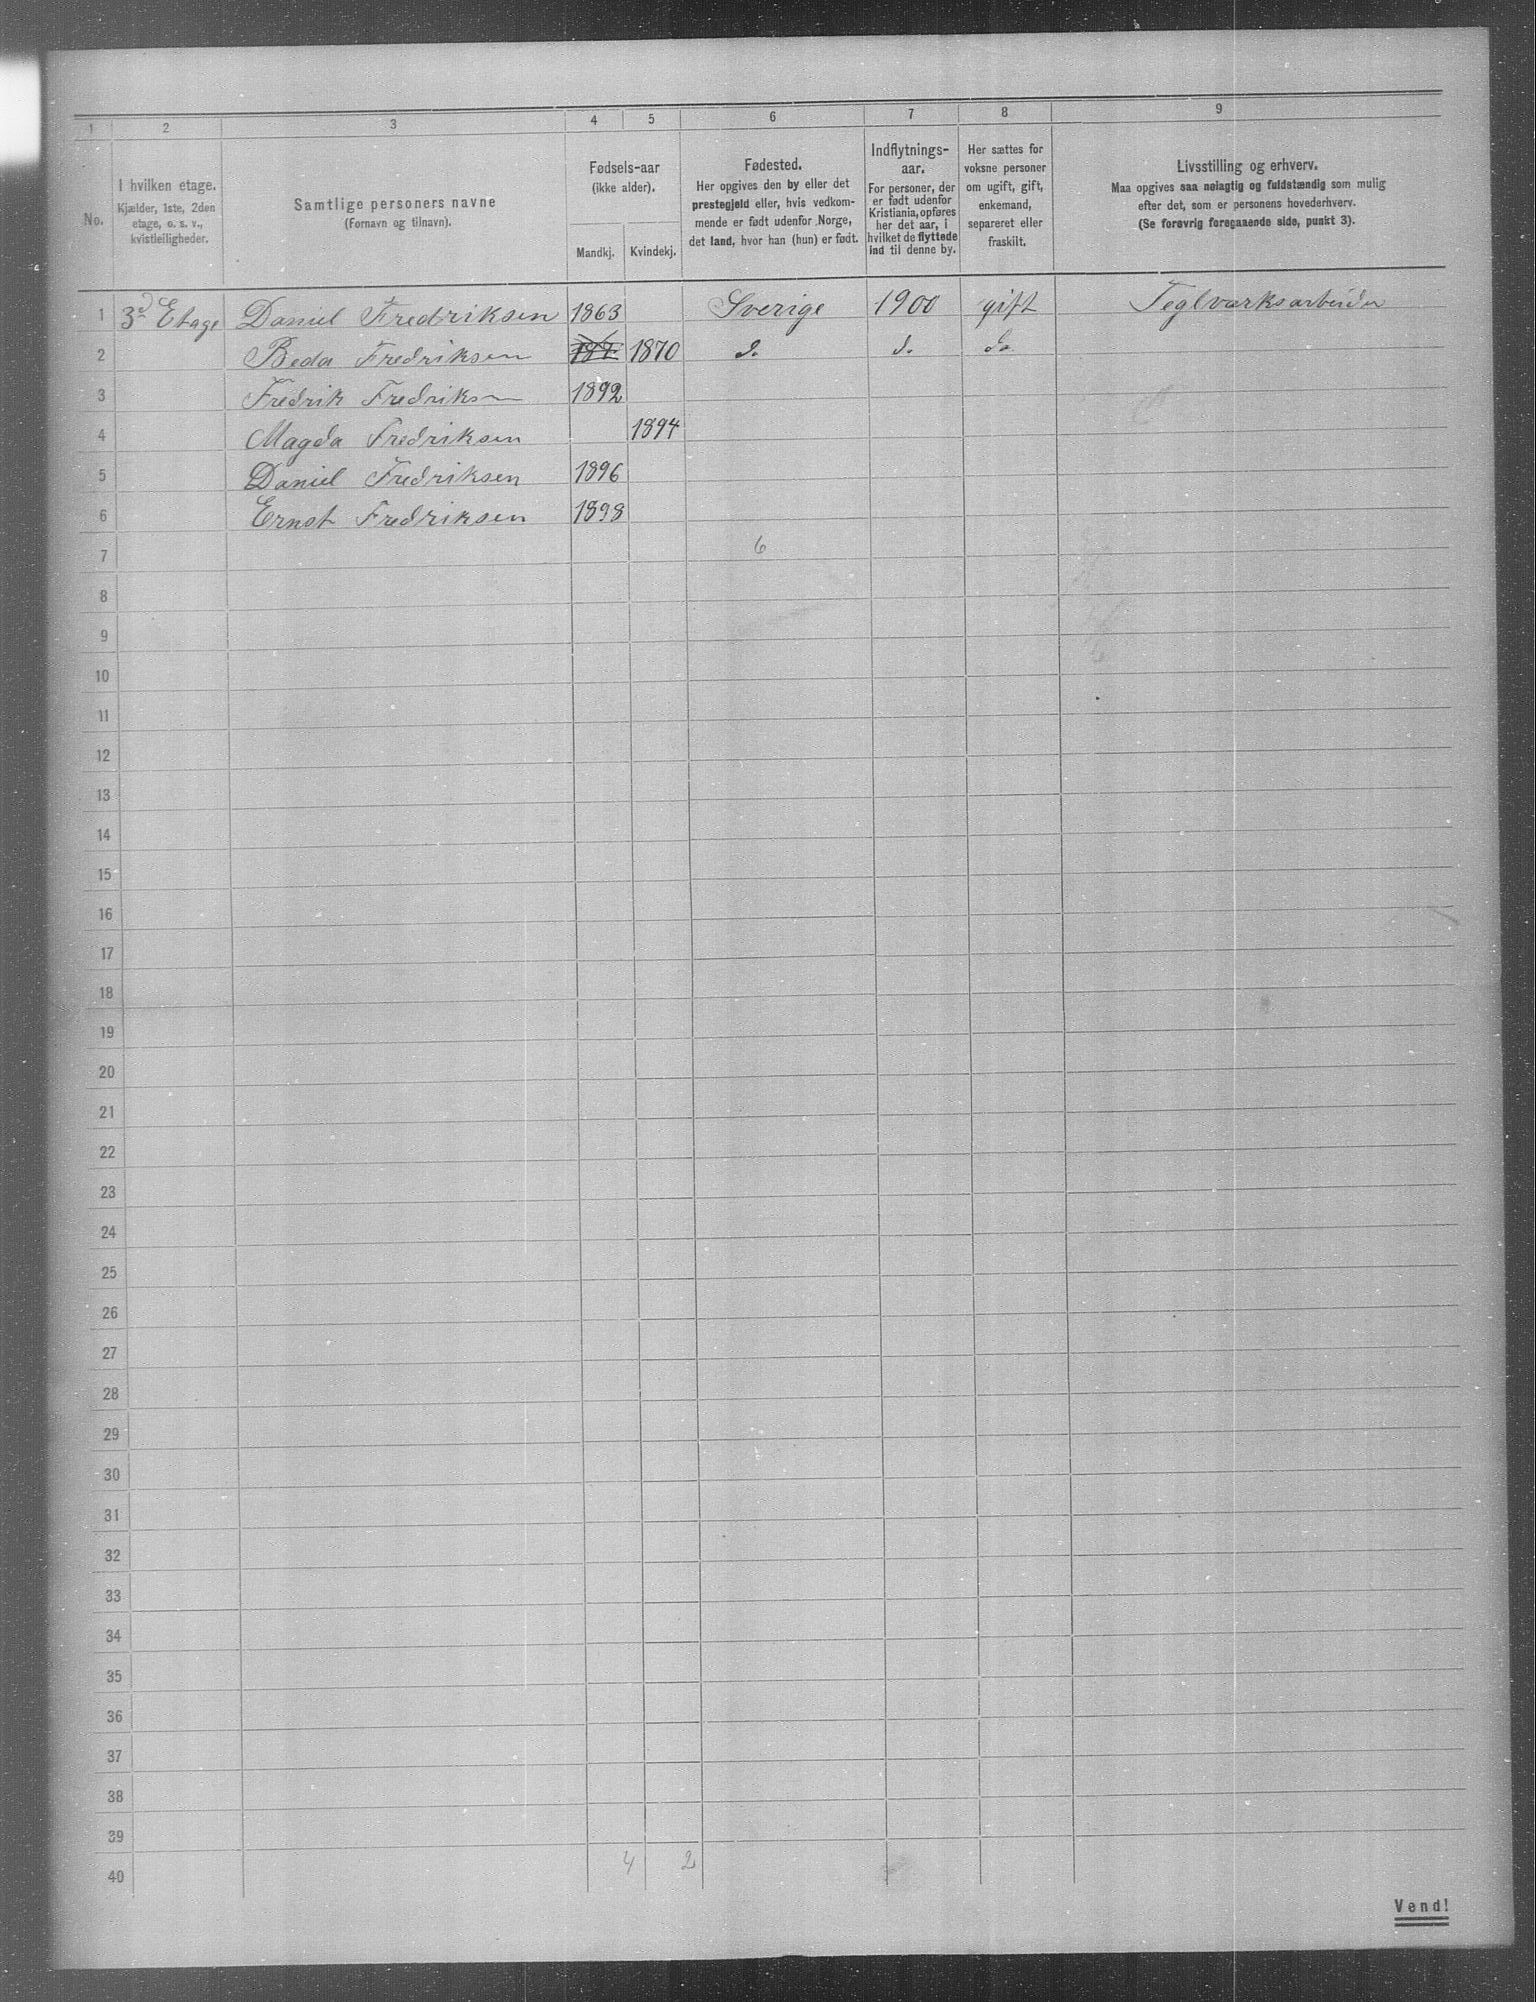 1 2 3 4 5 6 7 8 9
No.
I hvilken etage.
Kjælder, 1ste, 2den
etage, o. s. v.,
kvistleiligheder.
Samtlige personers navne
(Fornavn og tilnavn).
Fødsels-aar
(ikke alder).
Mandkj. Kvindekj.
Fødested.
Her opgives den by eller det
prestegjeld eller, hvis vedkom-
mende er født udenfor Norge,
det land, hvor han (hun) er født.
Indflytnings-
aar.
For personer, der
er født udenfor
Kristiania, opføres
her det aar, i
hvilket de flyttede
ind til denne by.
Her sættes for
voksne personer
om ugift, gift,
enkemand,
separeret eller
fraskilt.
Livsstilling og erhverv.
Maa opgives saa nøiagtig og fuldstændig som mulig
efter det, som er personens hovederhverv.
(Se forøvrig foregaaende side, punkt 3).
1 3d Etage Daniel Fredriksen 1863 Sverige 1900 gift Teglværksarbeider
2 Beda Fredriksen 1870 d. d. do
3 Fredrik Fredriksen 1892
4 Magda Fredriksen 1894
5 Daniel Fredriksen 1896
6 Ernst Fredriksen 1898
7 6
8
9
10
11
12
13
14
15
16
17
18
19
20
21
22
23
24
25
26
27
28
29
30
31
32
33
34
35
36
37
38
39
40 4 2
Vend!